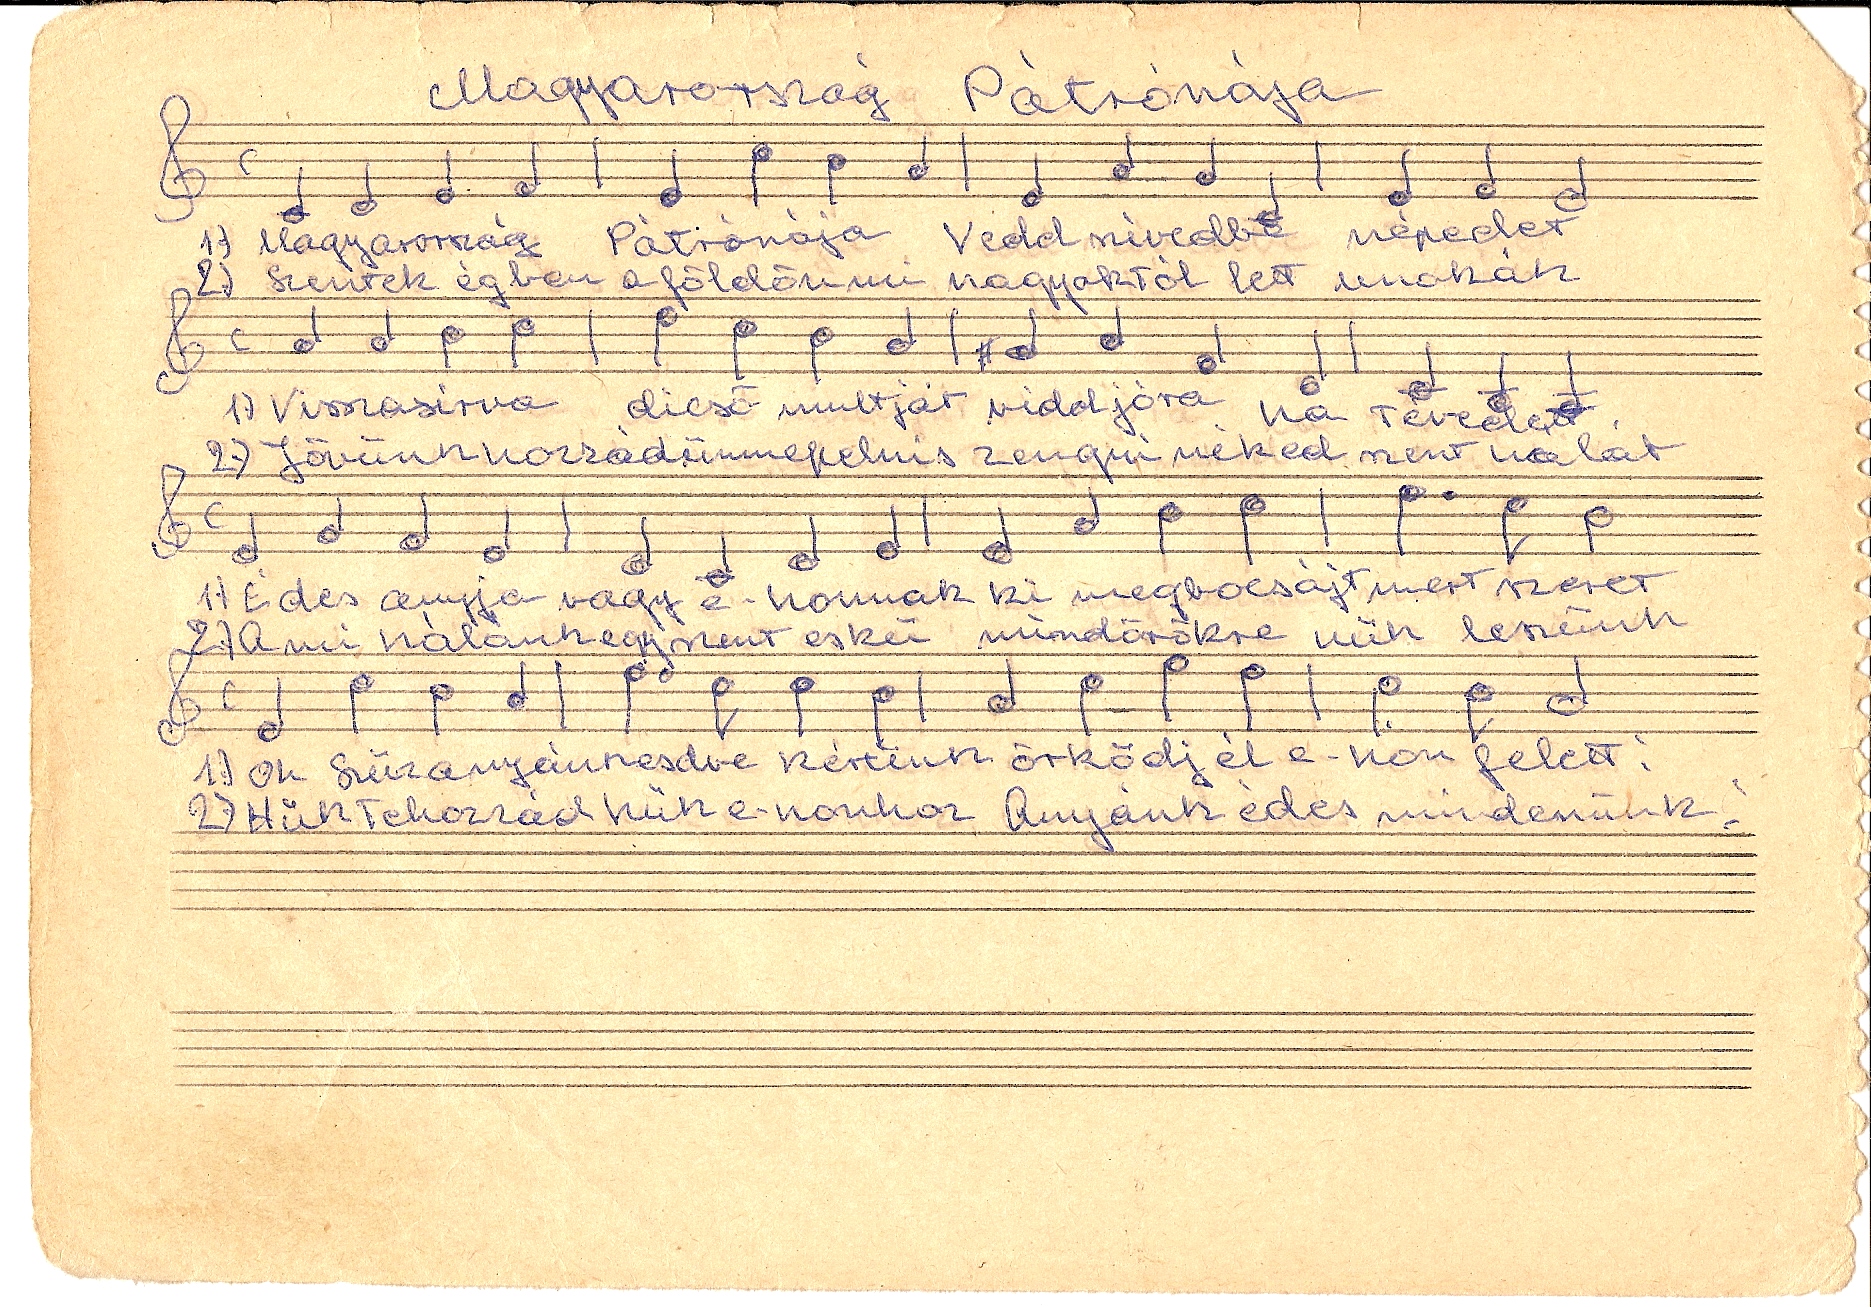 Magyarország Pátrónája
1) Magyarország Pátrónája Vedd szivedbe népedet
2) Szentek égben a földön mi nagyoktól lett unokák
1) Visszasirva dicső multját vidd jóra ha tévedett
2) Jövünk hozzád ünnepelni s zengni néked szent hálát
1) Édes anyja vagy e-honnak ki megbocsájt mert szeret
2) A mi hálánk egy szent eskü mindörökre hük leszünk
1) Oh Szüzanyánk esdve kérünk örködjél e-hon felett!
2) Hük Tehozzád hük e-honhoz Anyánk édes mindenünk!